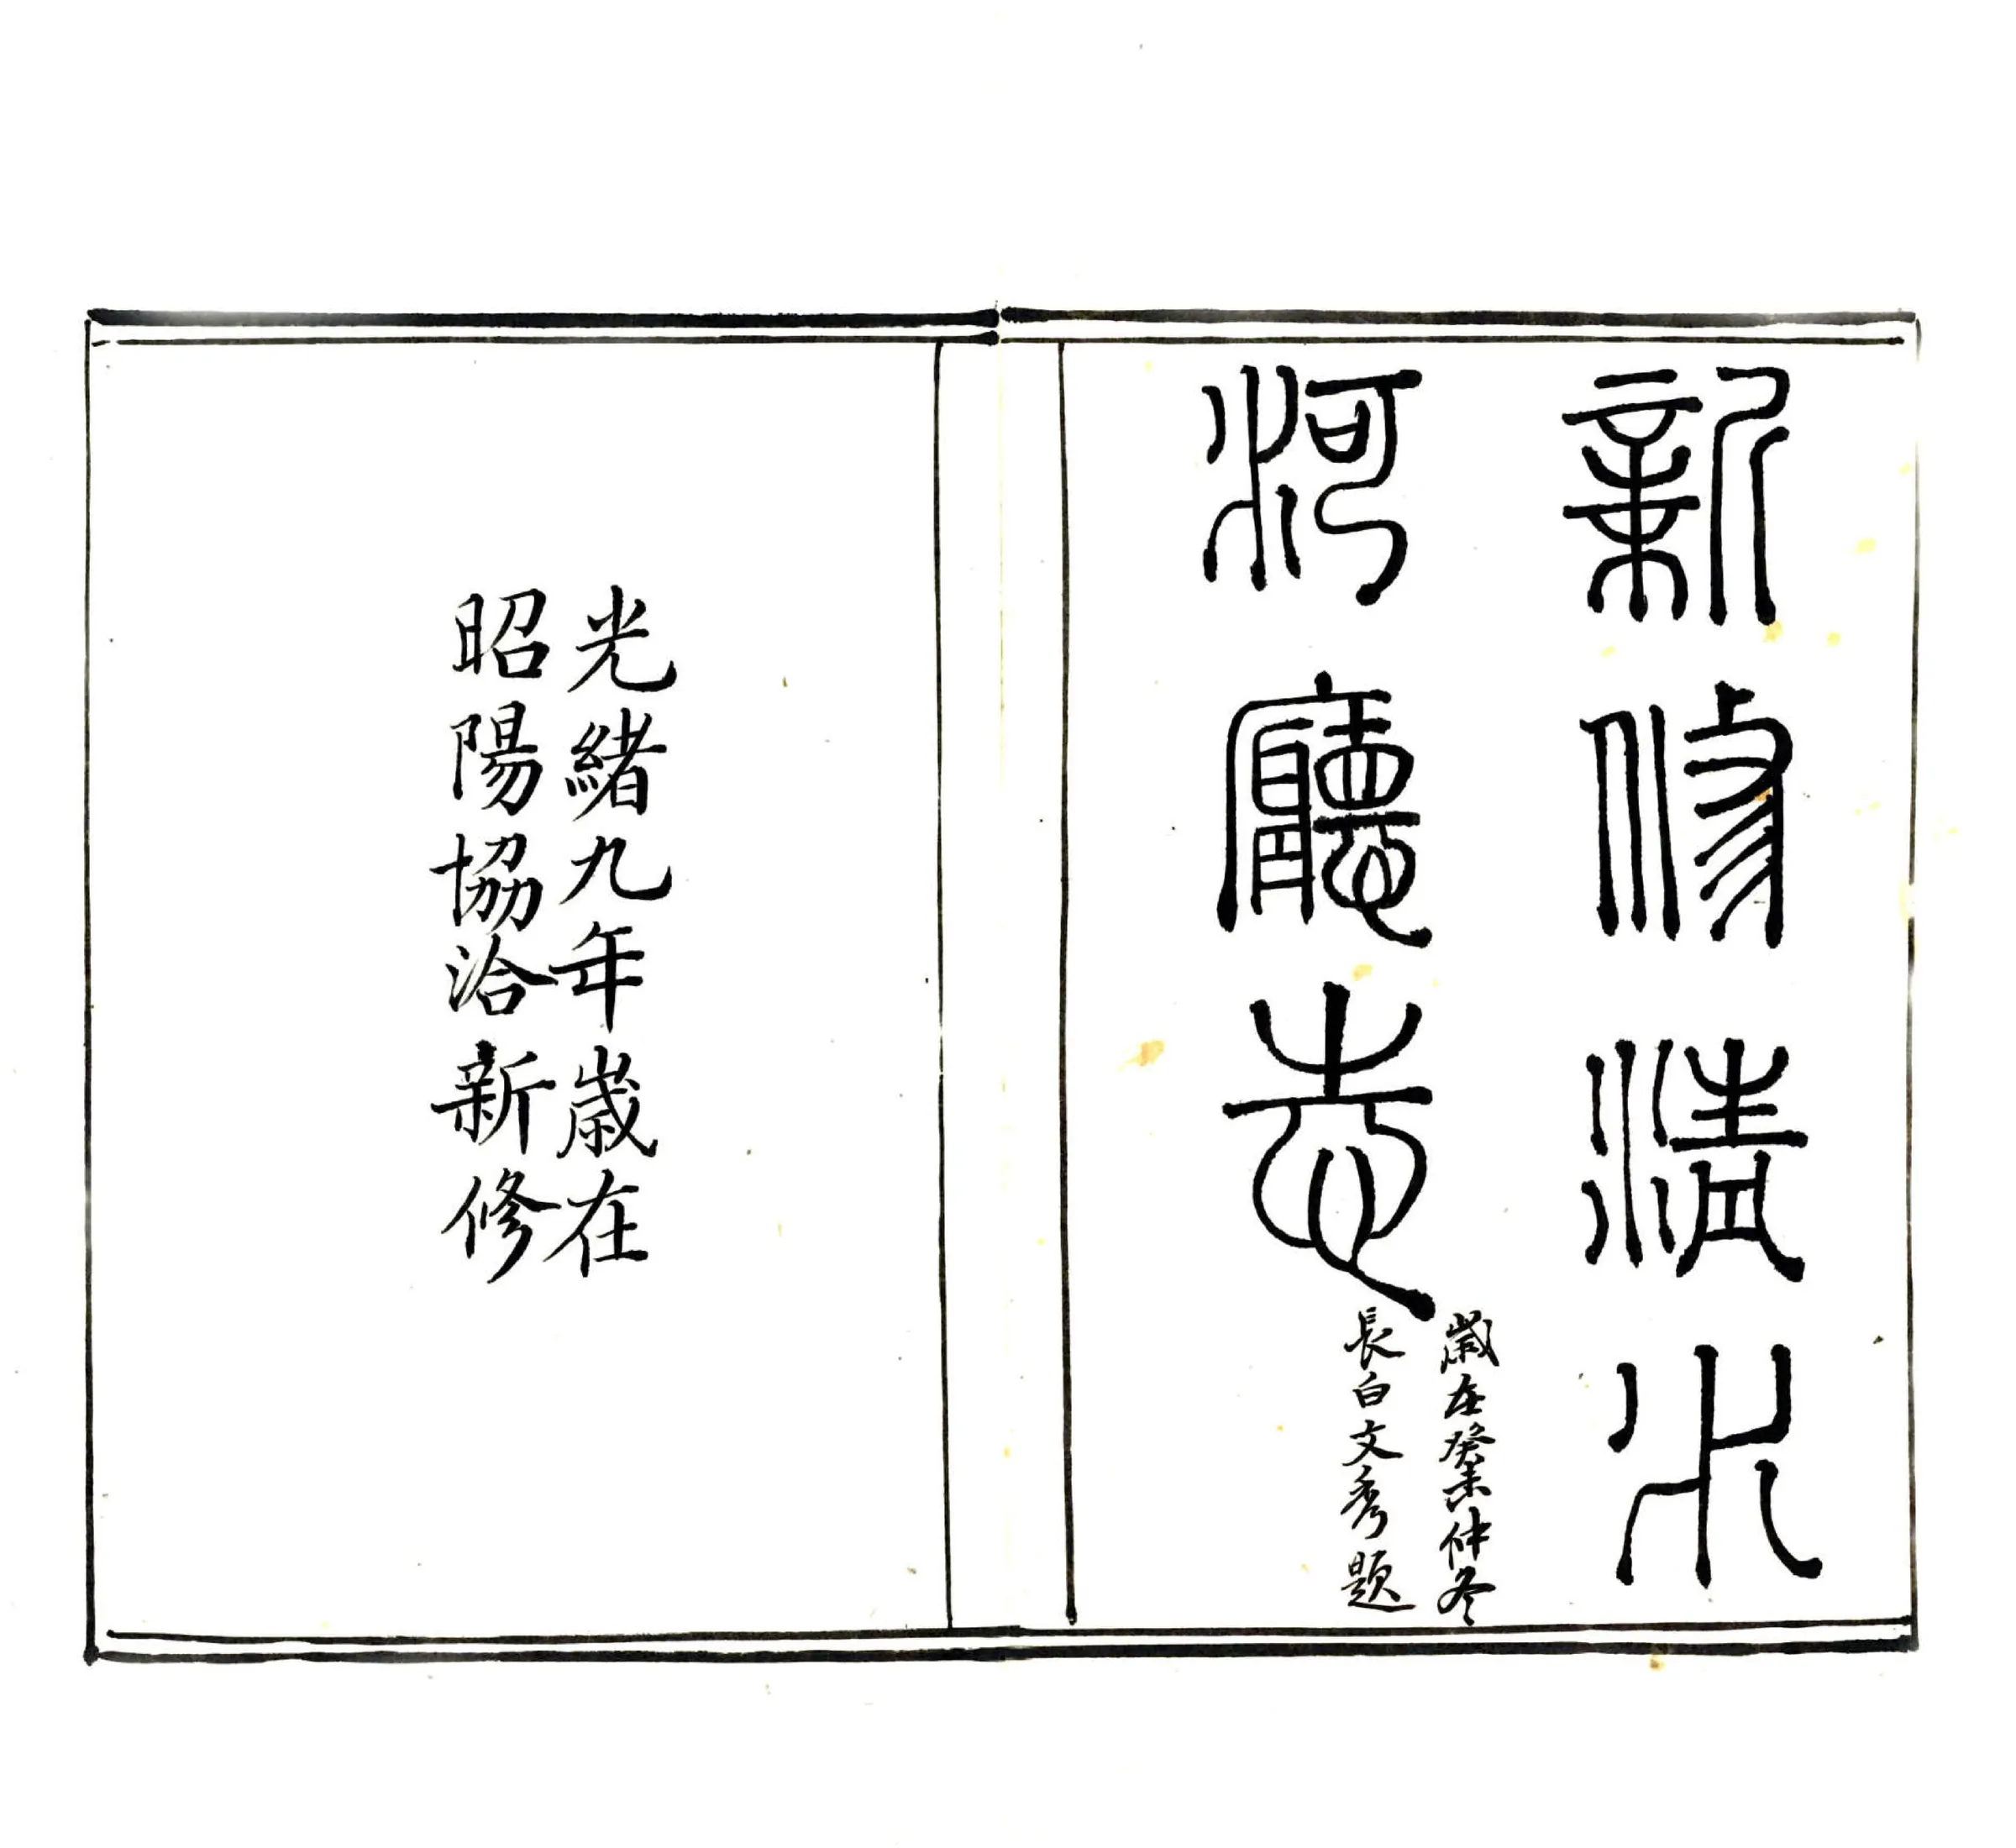 新修清水
河廳志
歲在癸未仲冬
長白文秀題
光緒九年歲在
昭陽協洽新修